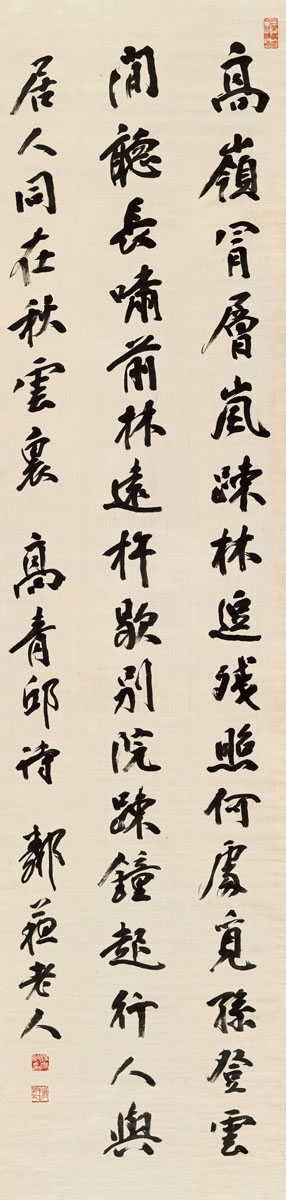 高嶺冐層嵐踈林逗残照何處覓孫登雲
間聽長嘯前林遠杵歇別院踈鐘起行人與
居人同在秋雲裏 高青邱詩 鄰蘇老人